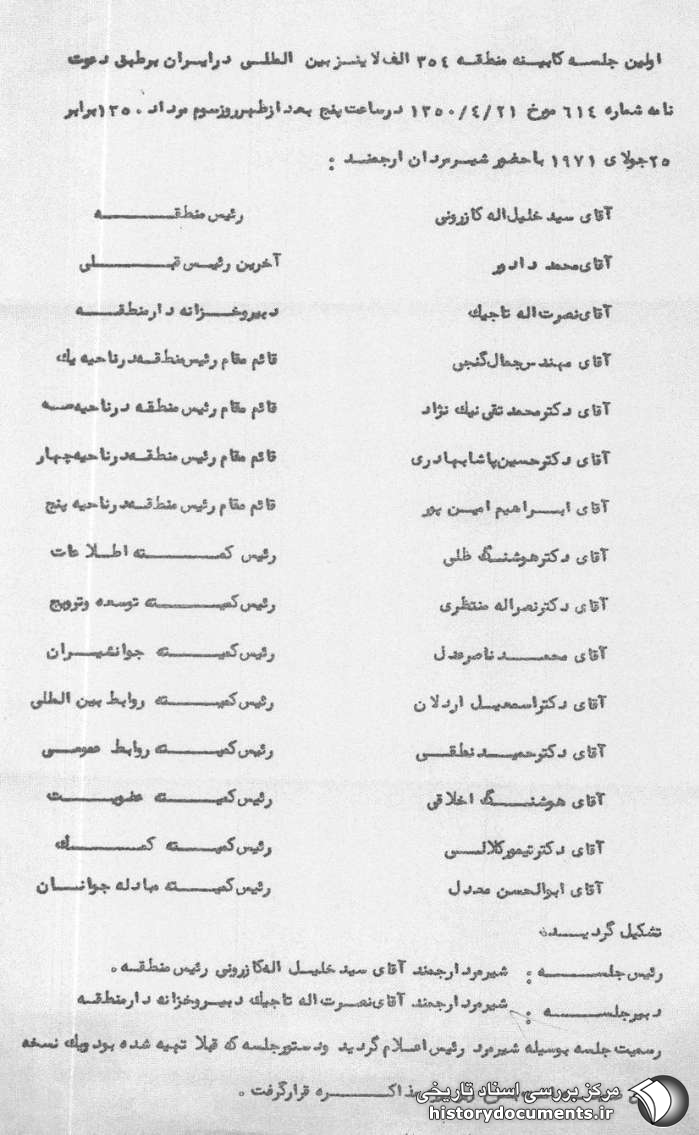 اولین جلسه کابینه منطقه ۳۵۴ الف لاینز بین المللی در ایران بر طبق دعوت
نامه شماره ۶۱۴ مورخ ۱۳۵۰/۴/۲۱ در ساعت پنج بعد از ظهر روز سوم مرداد ۱۳۵۰ برابر
۲۵ جولای ۱۹۷۱ با حضور شیرمردان ارجمند :
آقای سید خلیل اله کازرونی رئیس منطقه
آقای محمد دادور آخرین رئیس قبلی
آقای نصرت اله تاجیك دبیر و خزانه دار منطقه
آقای مهندس جمال گنجی قائم مقام رئیس منطقه در ناحیه یك
آقای دکتر محمد تقی نیك نژاد قائم مقام رئیس منطقه در ناحیه سه
آقای دکتر حسین پاشا بهادری قائم مقام رئیس منطقه در ناحیه چهار
آقای ابراهیم امین پور قائم مقام رئیس منطقه در ناحیه پنج
آقای دکتر هوشنگ ظلی رئیس کمیته اطلاعات
آقای دکتر نصراله منتظری رئیس کمیته توسعه و ترویج
آقای محمد ناصر عدل رئیس کمیته جوانشیران
آقای دکتر اسمعیل اردلان رئیس کمیته روابط بین المللی
آقای دکتر حمید نطقی رئیس کمیته روابط عمومی
آقای هوشنگ اخلاقی رئیس کمیته عضویت
آقای دکتر تیمور کلالی رئیس کمیته کمك
آقای ابوالحسن معدل رئیس کمیته مبادله جوانان
تشکیل گردید
رئیس جلسه : شیرمرد ارجمند آقای سید خلیل اله کازرونی رئیس منطقه .
دبیر جلسه : شیرمرد ارجمند آقای نصرت اله تاجیك دبیر و خزانه دار منطقه
رسمیت جلسه بوسیله شیرمرد رئیس اعلام گردید و دستور جلسه که قبلا تهیه شده بود و یك نسخه
مذاکره قرار گرفت .
مرکز بررسی اسناد تاریخی
historydocuments.ir